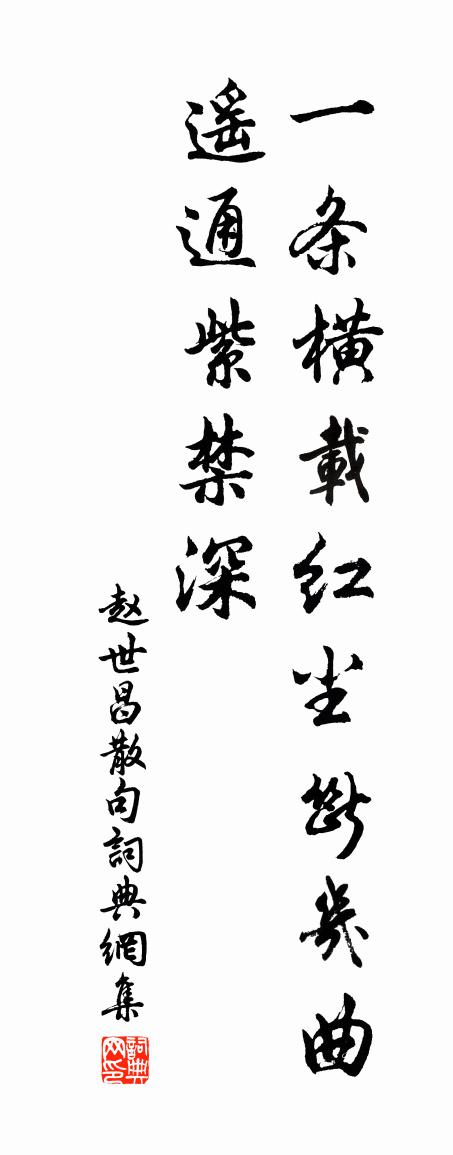 一条橫載红尘斷幾曲
遥通紫禁深
赵世昌散句詞典網集
詞典网印